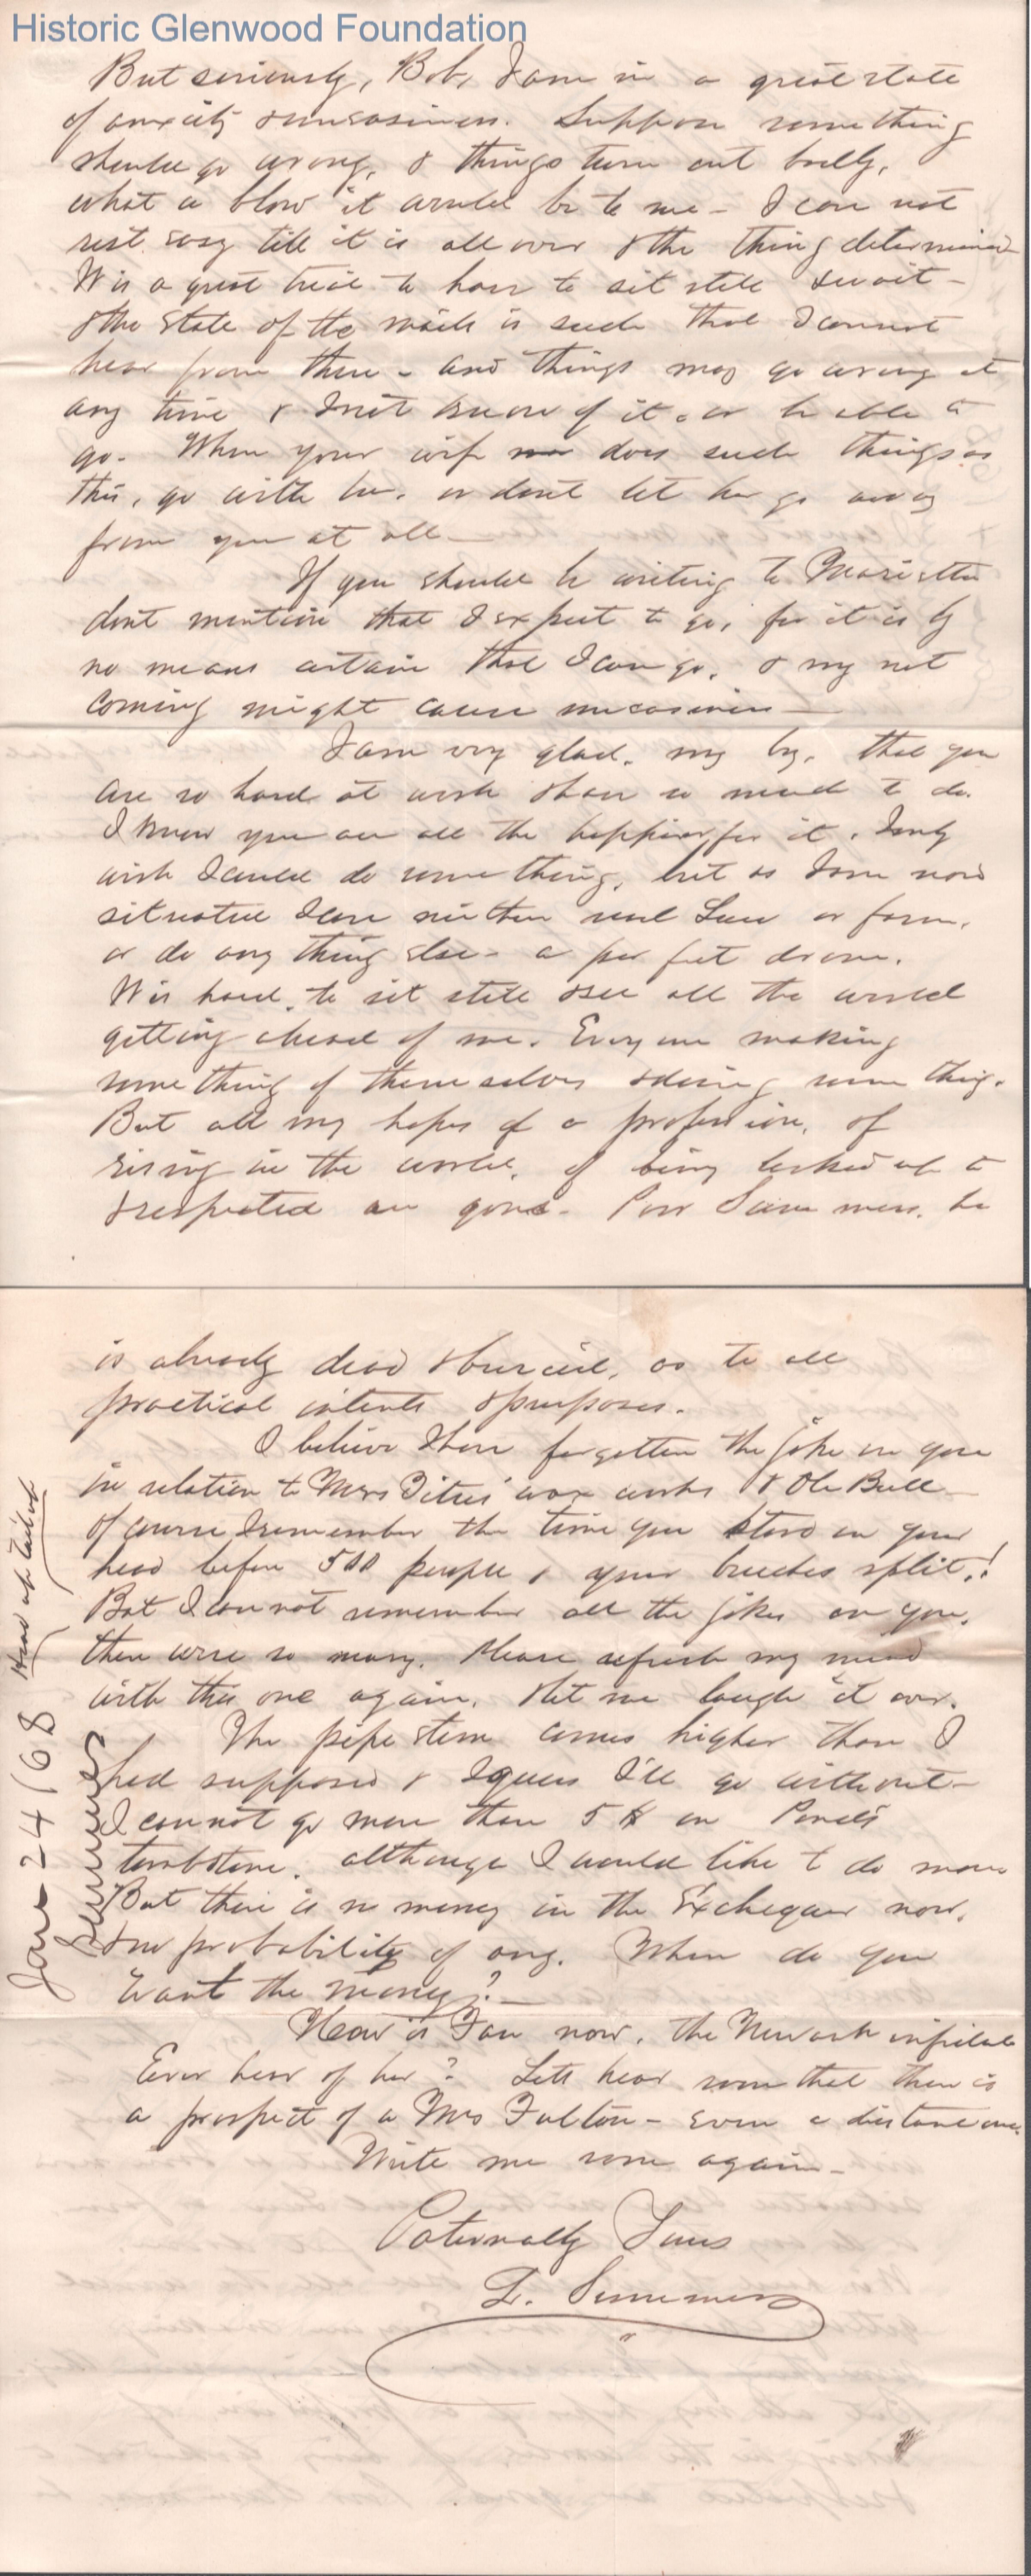 Historic Glenwood Foundation
But seriously, Bob, I am in a great state
of anxiety & uneasiness. Suppose something
should go wrong, & things turn out badly,
what a blow it would be to me - I can not
rest easy till it is all over & the thing determined
It is a great trial to have to sit still & wait -
& the state of the mails is such that I cannot
hear from there - and things may go wrong at
any time & I not know of it, or be able to
go. When your wife does such things as
this, go with her, or dont let her go away
from you at all -
If you should be writing to Marietta
dont mention that I expect to go, for it is by
no means certain that I can go, & my not
coming might cause uneasiness -
I am very glad, my boy, that you
are so hard at work & have so much to do.
I know you are all the happier for it. I only
wish I could do something, but as I am now
situated I can neither read Law or farm,
or do any thing else - a perfect drone.
It is hard to sit still & see all the world
getting ahead of me. Every one making
something of themselves & doing some thing.
But all my hopes of a profession, of
rising in the world, of being looked up to
& respected are gone - Poor Summers, he
is already dead & buried, as to all
practical intents & purposes.
I believe I have forgotten the joke on you
in relation to Mrs wax works & Ole Bull -
Of course I remember the time you stood on your
head before 500 people & your breeches split!!
But I can not remember all the jokes on you,
there were so many. Please refresh my mind
with this one again, & let me laugh it over.
The pipe stem comes higher than I
had supposed & I guess I'll go without -
I cannot go more than 5 $ on
tombstone, although I would like to do more
But there is no money in the Exchequer now,
& no probability of any. When do you
want the money? -
How is Fan now, the Newark
Ever hear of her? Lets hear soon that there is
a prospect of a Mrs Fulton - even a distant one.
Write me soon again -
Paternally Yours
L. Summers
June 24 / 68
Summers